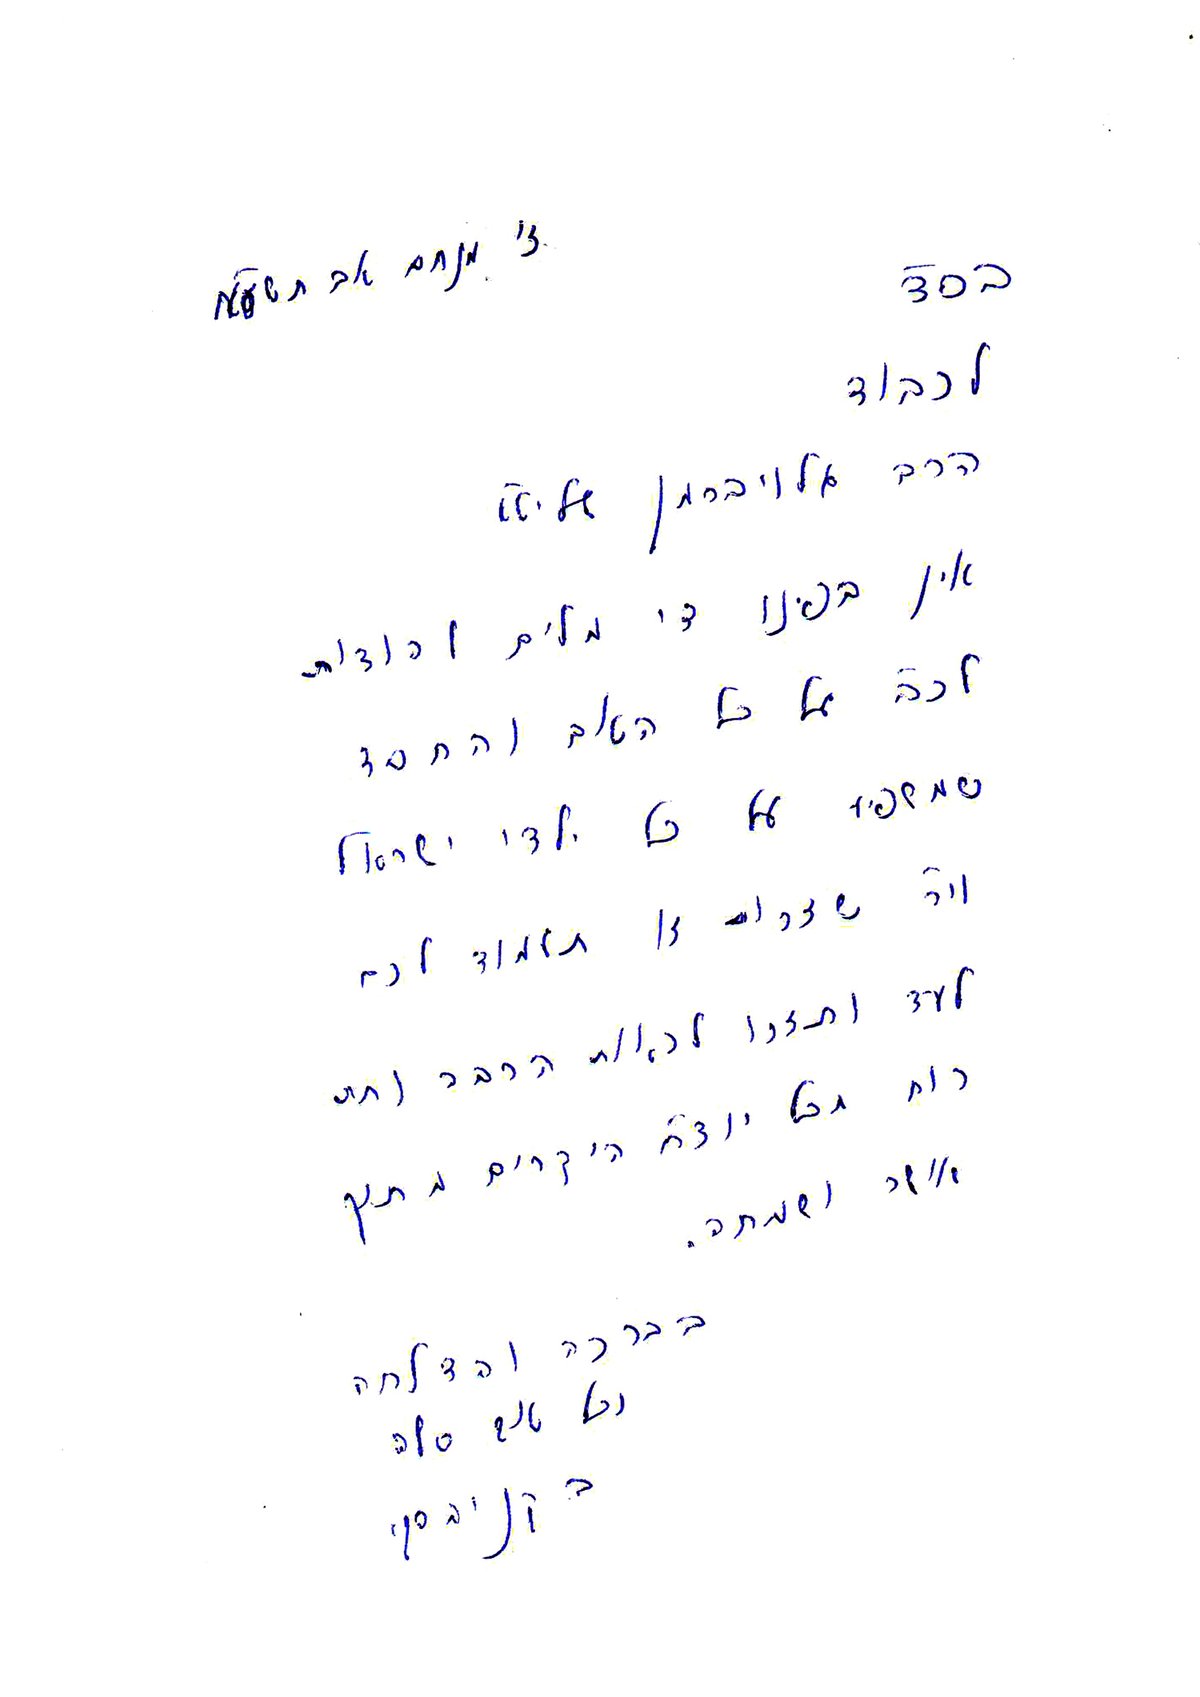 בסד
ז' מנחם אב תשע"ח
לכבוד
הרב גלויברמן שליט"א
אין בפינו די מלים להודות
לכב' על כל הטוב והחסד
שמשפיע על כל ילדי ישראל
ויה"ר שזכות זו תעמוד לכם
לעד ותזכו לראות הרבה נחת
רוח מכל יוצ"ח היקרים מתוך
אושר ושמחה.
בברכה והצלחה
וכל טוב סלה
ב קניבסקי